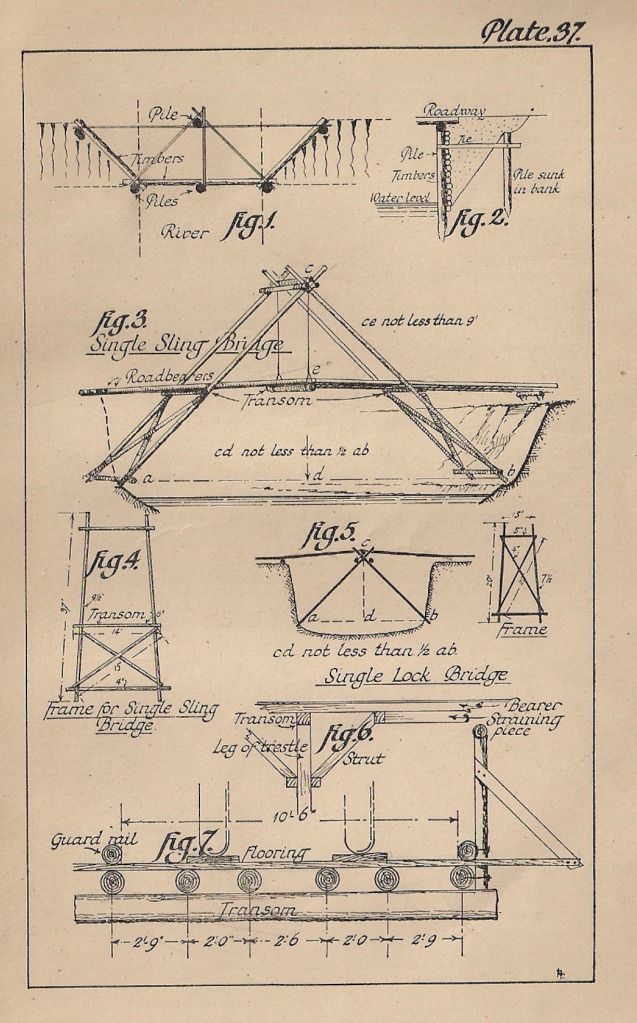 Plate.37.
Pile
Timbers
Piles
River
fig.1.
Roadway
Tie
Pile
Timbers
Pile sunk
in bank
Water level
fig.2.
c
fig.3.
Single Sling Bridge
ce not less than 9'
Roadbearers
e
Transom
cd not less than ½ ab
a
d
b
fig.4.
9½"
Transom
6'
14'
15
4"
Frame for Single Sling
Bridge
fig.5.
c
a
d
b
cd not less than ½ ab.
Single Lock Bridge
15'
5"
20'
4"
7½
Frame
Transom
Bearer
Straining
piece
fig.6.
Leg of trestle
Strut
10'-6"
Guard rail
fig.7.
Flooring
Transom
2'-9"
2'-0"
2'-6
2'-0
2'-9